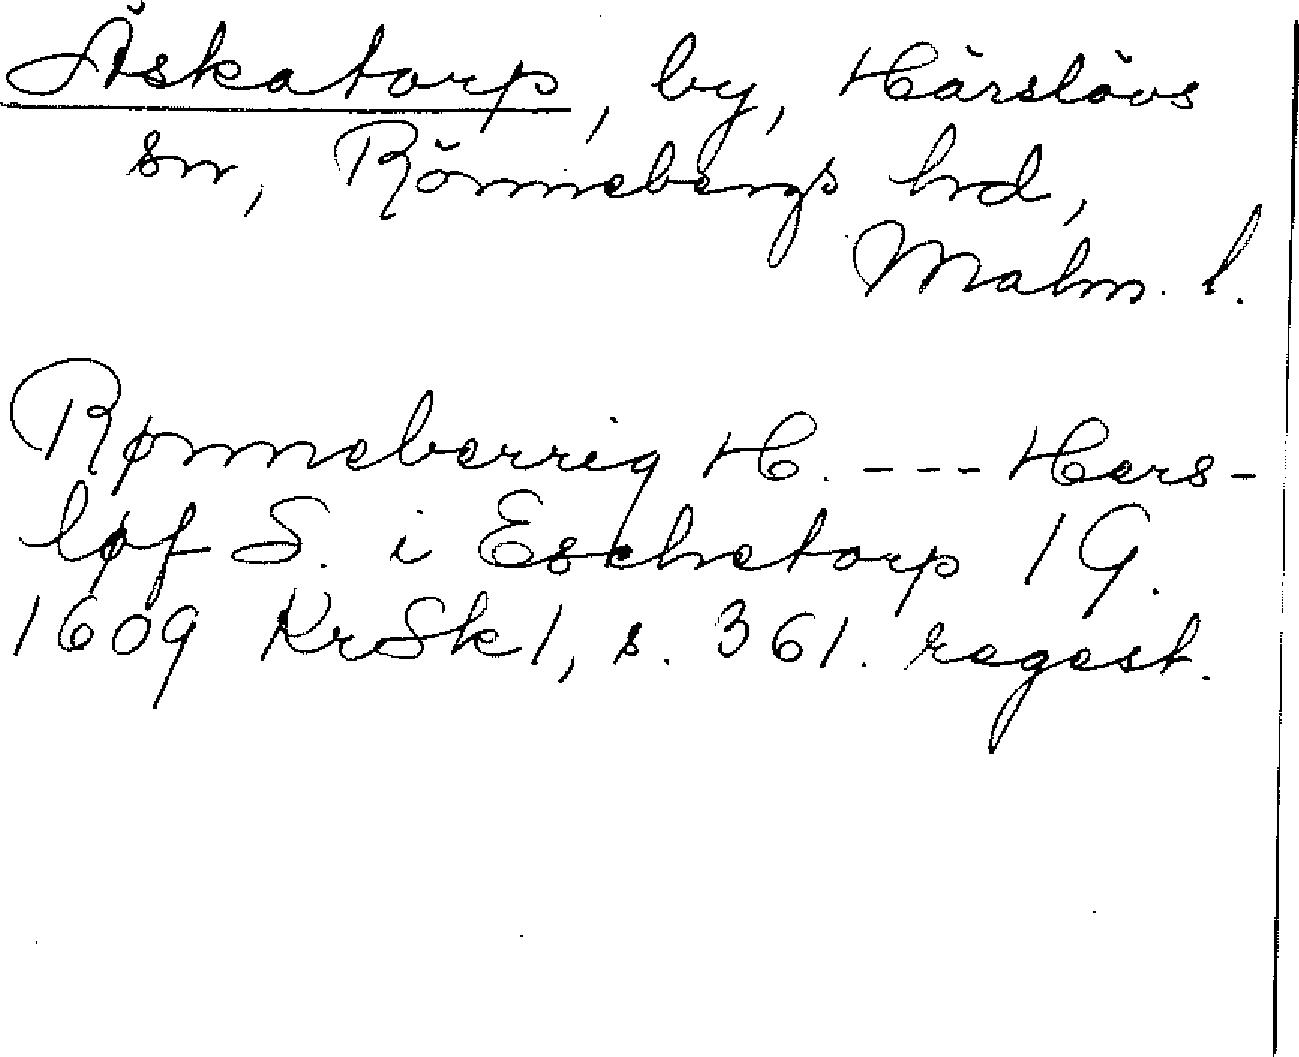 Äskatorp, by, Härslövs
sn, Rönnebergs hrd,
Malm. l.
Rønneberrig H. --- Hers-
løf S. i Eschetorp 1 G.
1609 KrSk 1, s. 361. regest.